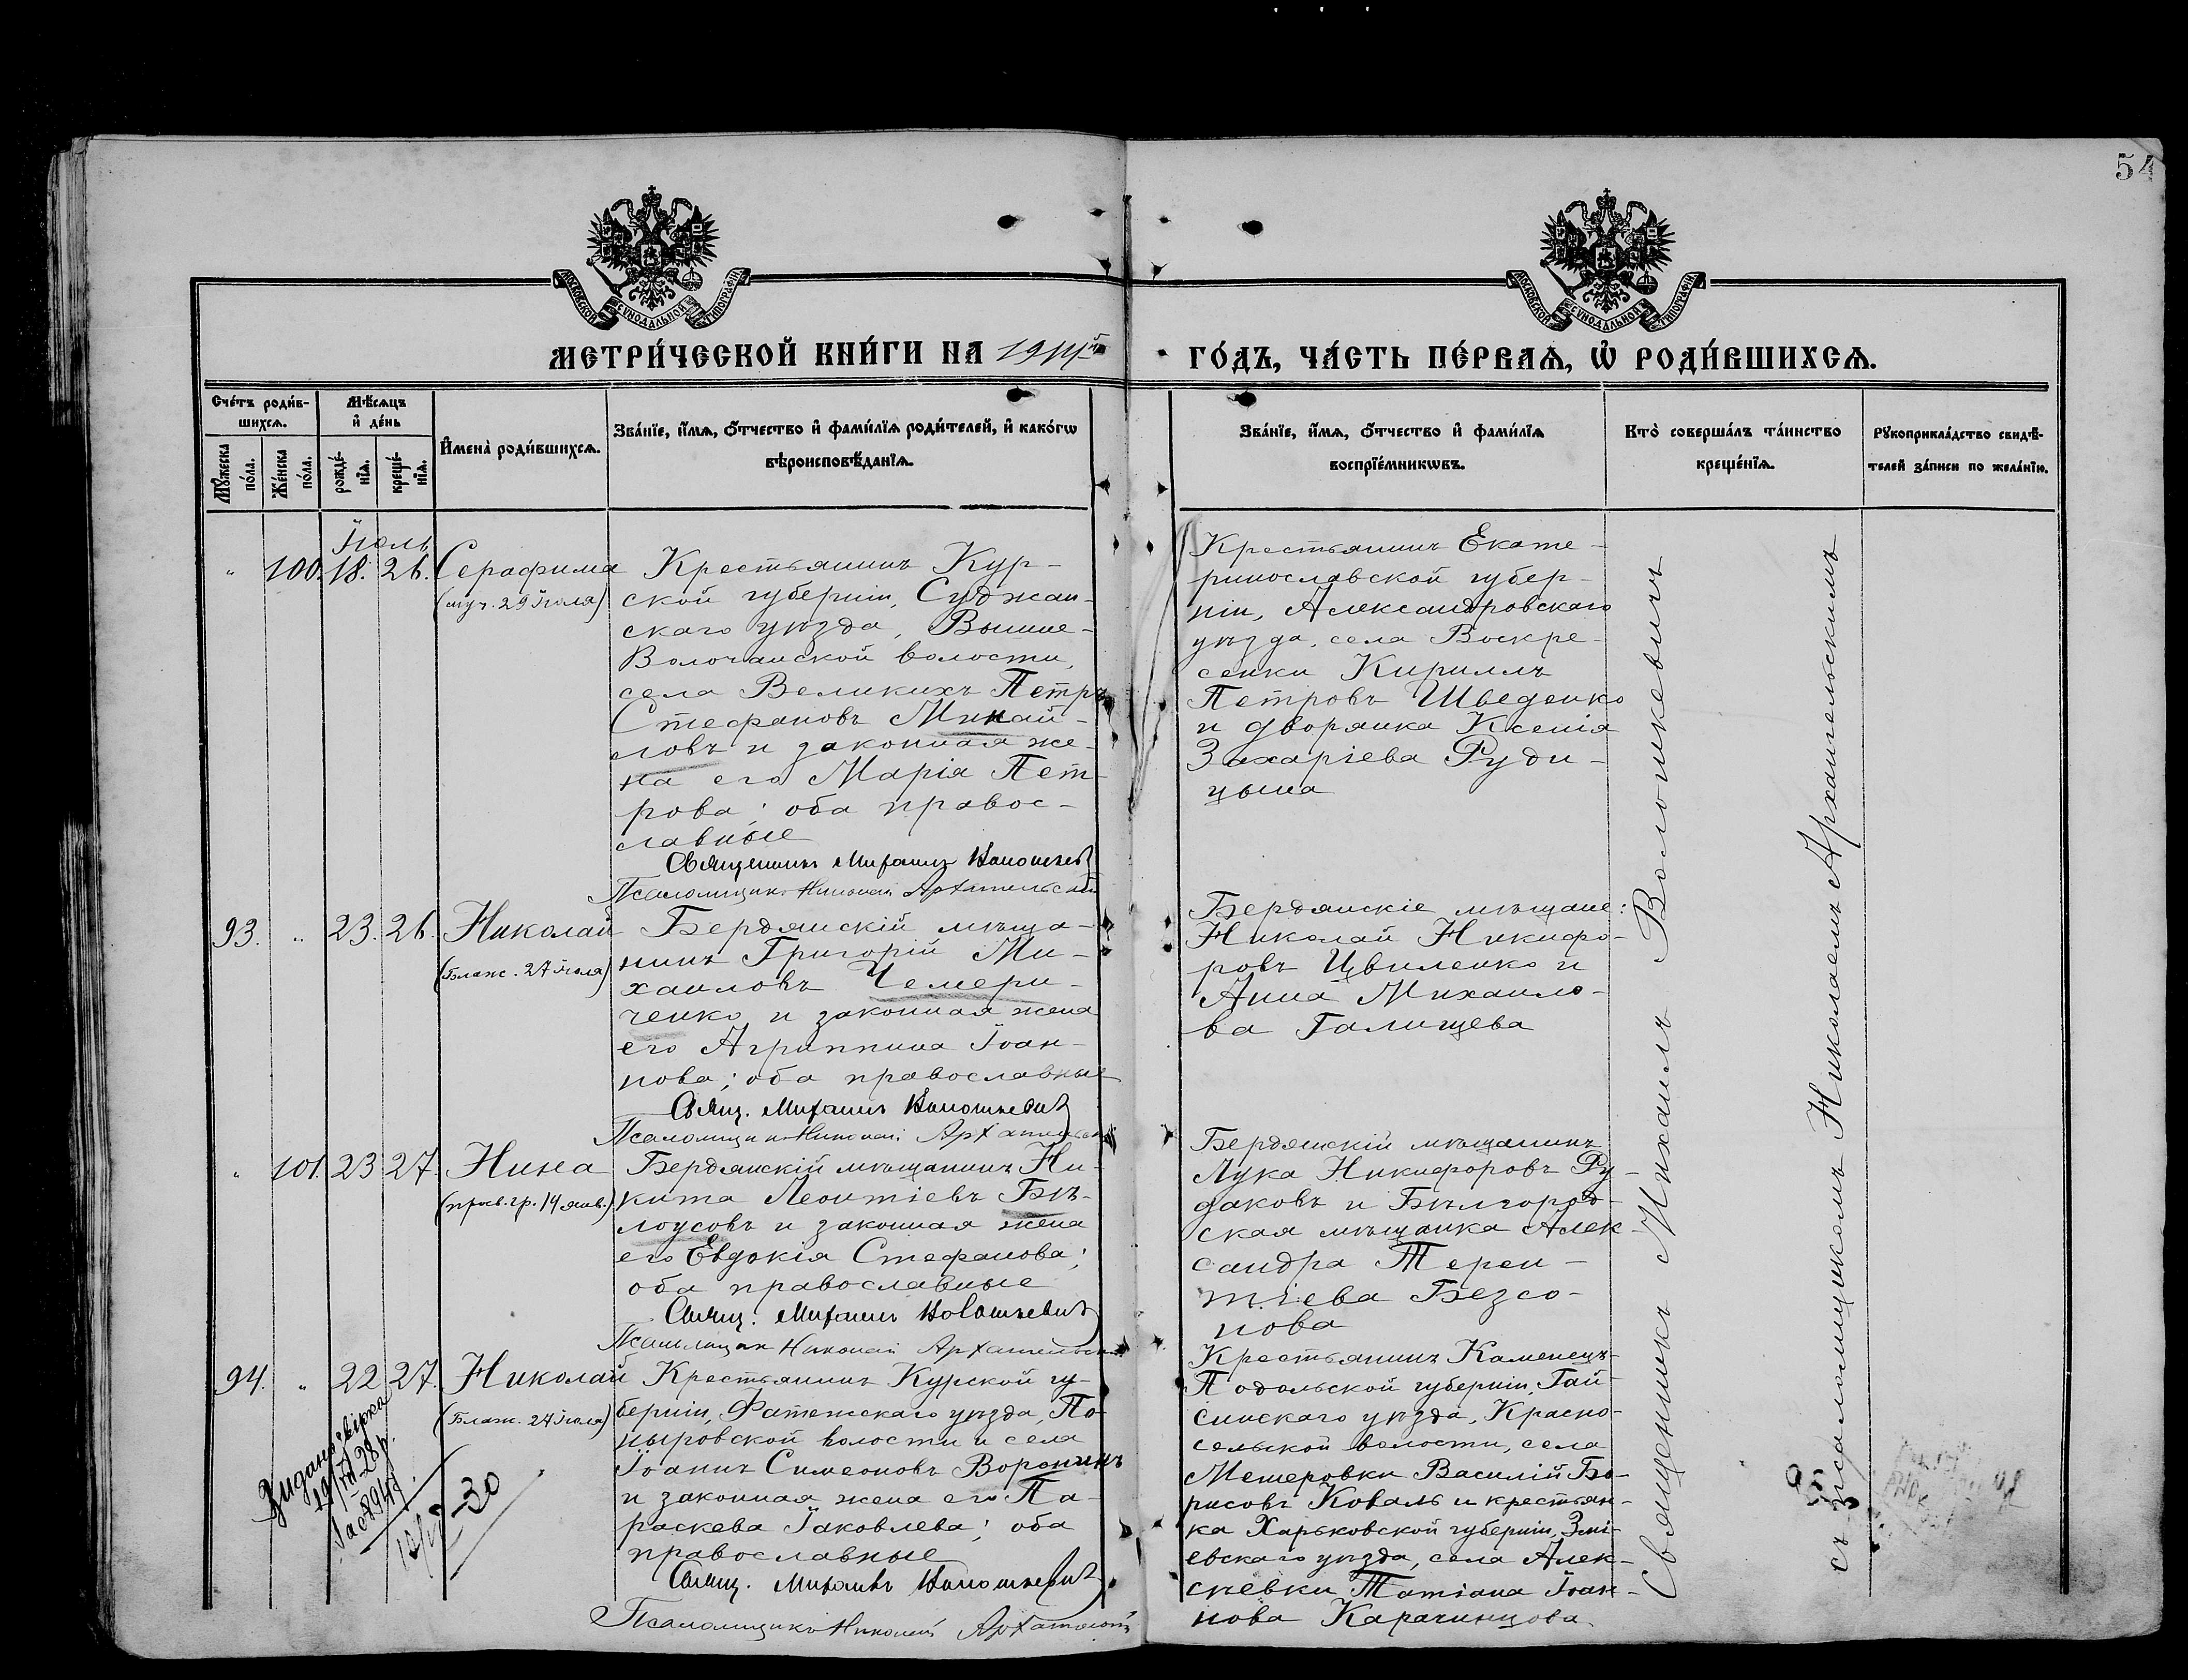 54
МОСКОВСКОЙ СѴНОДАЛЬНОЙ ТИПОГРАФІИ
МОСКОВСКОЙ СѴНОДАЛЬНОЙ ТИПОГРАФІИ
МЕТРИ́ЧЕСКОЙ КНИ́ГИ НА 1914й
ГО́ДЪ, ЧА́СТЬ ПЕ́РВАѦ, Ѡ҆ РОДИ́ВШИХСѦ.
Сче́тъ роди́в-
шихсѧ.
Мꙋ́жеска по́ла.
Же́нска по́ла.
Мѣ́сѧцъ
и҆ де́нь
рожде́-
нїѧ.
креще́-
нїѧ.
И҆мена̀ роди́вшихсѧ.
Зва́нїе, и҆́мѧ, ѻ҆́тчество и҆ фами́лїѧ роди́телей, и҆ како́гѡ
вѣроисповѣ́данїѧ.
Зва́нїе, и҆́мѧ, ѻ҆́тчество и҆ фами́лїѧ
воспрїе́мникѡвъ.
Кто̀ соверша́лъ та́инство
креще́нїѧ.
Рꙋкоприкла́дство свидѣ́-
телей за́писи по жела́нїю.
Іюль
" 100. 18. 26. Серафима
(муч. 29 Іюля)
Крестьянинъ Кур-
ской губерніи, Суджан-
скаго уѣзда, Выше-
Волочанской волости,
села Великихъ Петръ
Стефановъ Михай-
ловъ и законная же-
на его Марія Пет-
рова; оба правос-
лавные
Священникъ Михаилъ Волошкевичъ
Псаломщикъ Николай Архангельскій
Крестьянинъ Екате-
ринославской губер-
ніи, Александровскаго
уѣзда, села Воскре-
сенки Кириллъ
Петровъ Шведенко
и дворянка Ксенія
Захаріева Руди-
цына
93. " 23. 26. Николай
(Блаж. 27 Іюля)
Бердянскій мѣща-
нинъ Григорій Ми-
хаиловъ Чемери-
ченко и законная жена
его Агриппина Іоан-
нова; оба православные
Свящ. Михаилъ Волошкевичъ
Псаломщикъ Николай Архангельскій
Бердянскіе мѣщане:
Николай Никифо-
ровъ Цвиленко и
Анна Михаило-
ва Галищева
" 101. 23 27. Нина
(просв. гр. 14 янв.)
Бердянскій мѣщанинъ Ни-
кита Леонтіевъ Бѣ-
лоусовъ и законная жена
его Евдокія Стефанова;
оба православные
Свящ. Михаилъ Волошкевичъ
Псаломщикъ Николай Архангельскій
Бердянскій мѣщанинъ
Лука Никифоровъ Ру-
даковъ и Бѣлгород-
ская мѣщанка Алек-
сандра Терен-
тіева Безсо-
нова
94. " 22 27. Николай
(Блаж. 27 Іюля)
Крестьянинъ Курской гу-
берніи, Фатежскаго уѣзда, По-
ныровской волости и села
Іоаннъ Симеоновъ Воронинъ
и законная жена его Па-
раскева Іаковлева; оба
православные
Свящ. Михаилъ Волошкевичъ
Псаломщикъ Николай Архангельскій
Крестьянинъ Каменецъ-
Подольской губерніи, Гай-
синскаго уѣзда, Красно-
сельской волости, села
Метеровки Василій Бо-
рисовъ Коваль и крестьян-
ка Харьковской губерніи, Змі-
евскаго уѣзда, села Алек-
сѣевки Татіана Іоан-
нова Карачинцова
Священникъ Михаилъ Волошкевичъ
съ псаломщикомъ Николаемъ Архангельскимъ